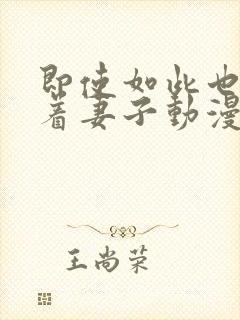 即使如此也
着妻子動漫
王尚荣